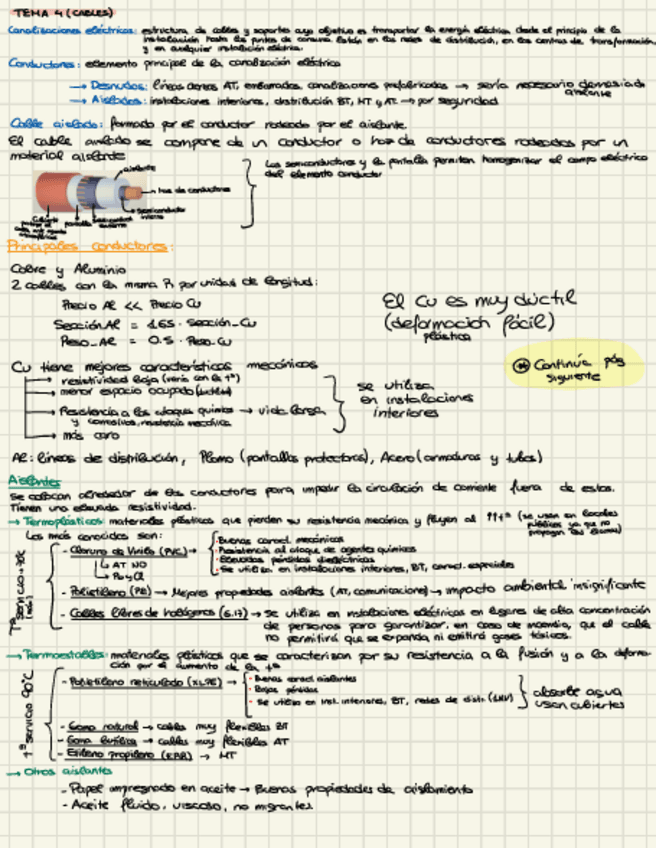 TEMA 4 (CABLES)
Canalizaciones eléctricas: estructura de cables y soportes cuyo objetivo es transportar la energía eléctrica desde el principio de la
instalación hasta los puntos de consumo. Están en las redes de distribución, en los centros de transformación,
y en cualquier instalación eléctrica.
Conductores: elemento principal de la canalización eléctrica
→ Desnudos: líneas aéreas AT, embarrados, canalizaciones prefabricadas → sería necesario demasiado
aislante
→ Aislados: instalaciones interiores, distribución BT, MT y AT → por seguridad
Cable aislado: formado por el conductor rodeado por el aislante.
El cable aislado se compone de un conductor o haz de conductores rodeados por un
material aislante
aislante
haz de conductores
semiconductor
interno
pantalla
Cubierta
Los semiconductores y la pantalla permiten homogenizar el campo eléctrico
del elemento conductor
Principales conductores:
Cobre y Aluminio
2 cables con la misma R por unidad de longitud:
Precio Al << Precio Cu
Sección Al = 1,65 · Sección_Cu
Peso_Al = 0.5 · Peso_Cu
El Cu es muy dúctil
(deformación fácil)
plástica
Continúa pág
siguiente
Cu tiene mejores características mecánicas
resistividad baja (varía con la tª)
menor espacio ocupado
Resistencia a los ataques químicos → vida larga
y corrosivos, resistencia mecánica
más caro
se utiliza
en instalaciones
interiores
Al: líneas de distribución, Plomo (pantallas protectoras), Acero (armaduras y tubos)
Aislantes
Se colocan alrededor de los conductores para impedir la circulación de corriente fuera de estos.
Tienen una elevada resistividad.
→ Termoplásticos: materiales plásticos que pierden su resistencia mecánica y fluyen al ↑↑tª (se usan en locales
públicos ya que no
propagan
Los más conocidos son:
Tª servicio
- Cloruro de Vinilo (PVC) →
AT NO
· Buenas caract. mecánicas
· Resistencia al ataque de agentes químicos
· Elevadas pérdidas dieléctricas
· Se utiliza en instalaciones interiores, BT, caract. especiales
- Polietileno (PE) → Mejores propiedades aislantes (AT, comunicaciones) → impacto ambiental insignificante
- Cables libres de halógenos → se utiliza en instalaciones eléctricas en lugares de alta concentración
de personas para garantizar, en caso de incendio, que el cable
no permitirá que se expanda, ni emitirá gases tóxicos.
→ Termoestables: materiales plásticos que se caracterizan por su resistencia a la fusión y a la deforma-
ción por el aumento de la tª
tª servicio 90°C
- Polietileno reticulado (XLPE) →
· Buenas caract. aislantes
· Bajas pérdidas
· Se utiliza en inst. interiores, BT, redes de distr.
absorbe agua
usan cubiertas
- Goma natural → cables muy flexibles BT
- Goma butílica → cables muy flexibles AT
- Etileno propileno → MT
→ Otros aislantes
- Papel impregnado en aceite → Buenas propiedades de aislamiento
- Aceite fluido, viscoso, no migrantes